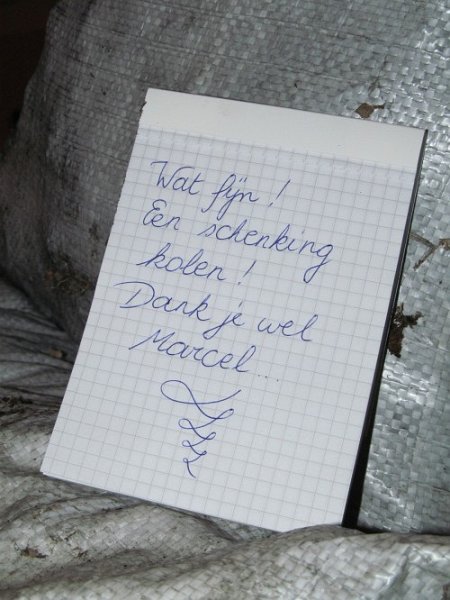 Wat fijn!
Een schenking
kolen!
Dank je wel
Marcel...